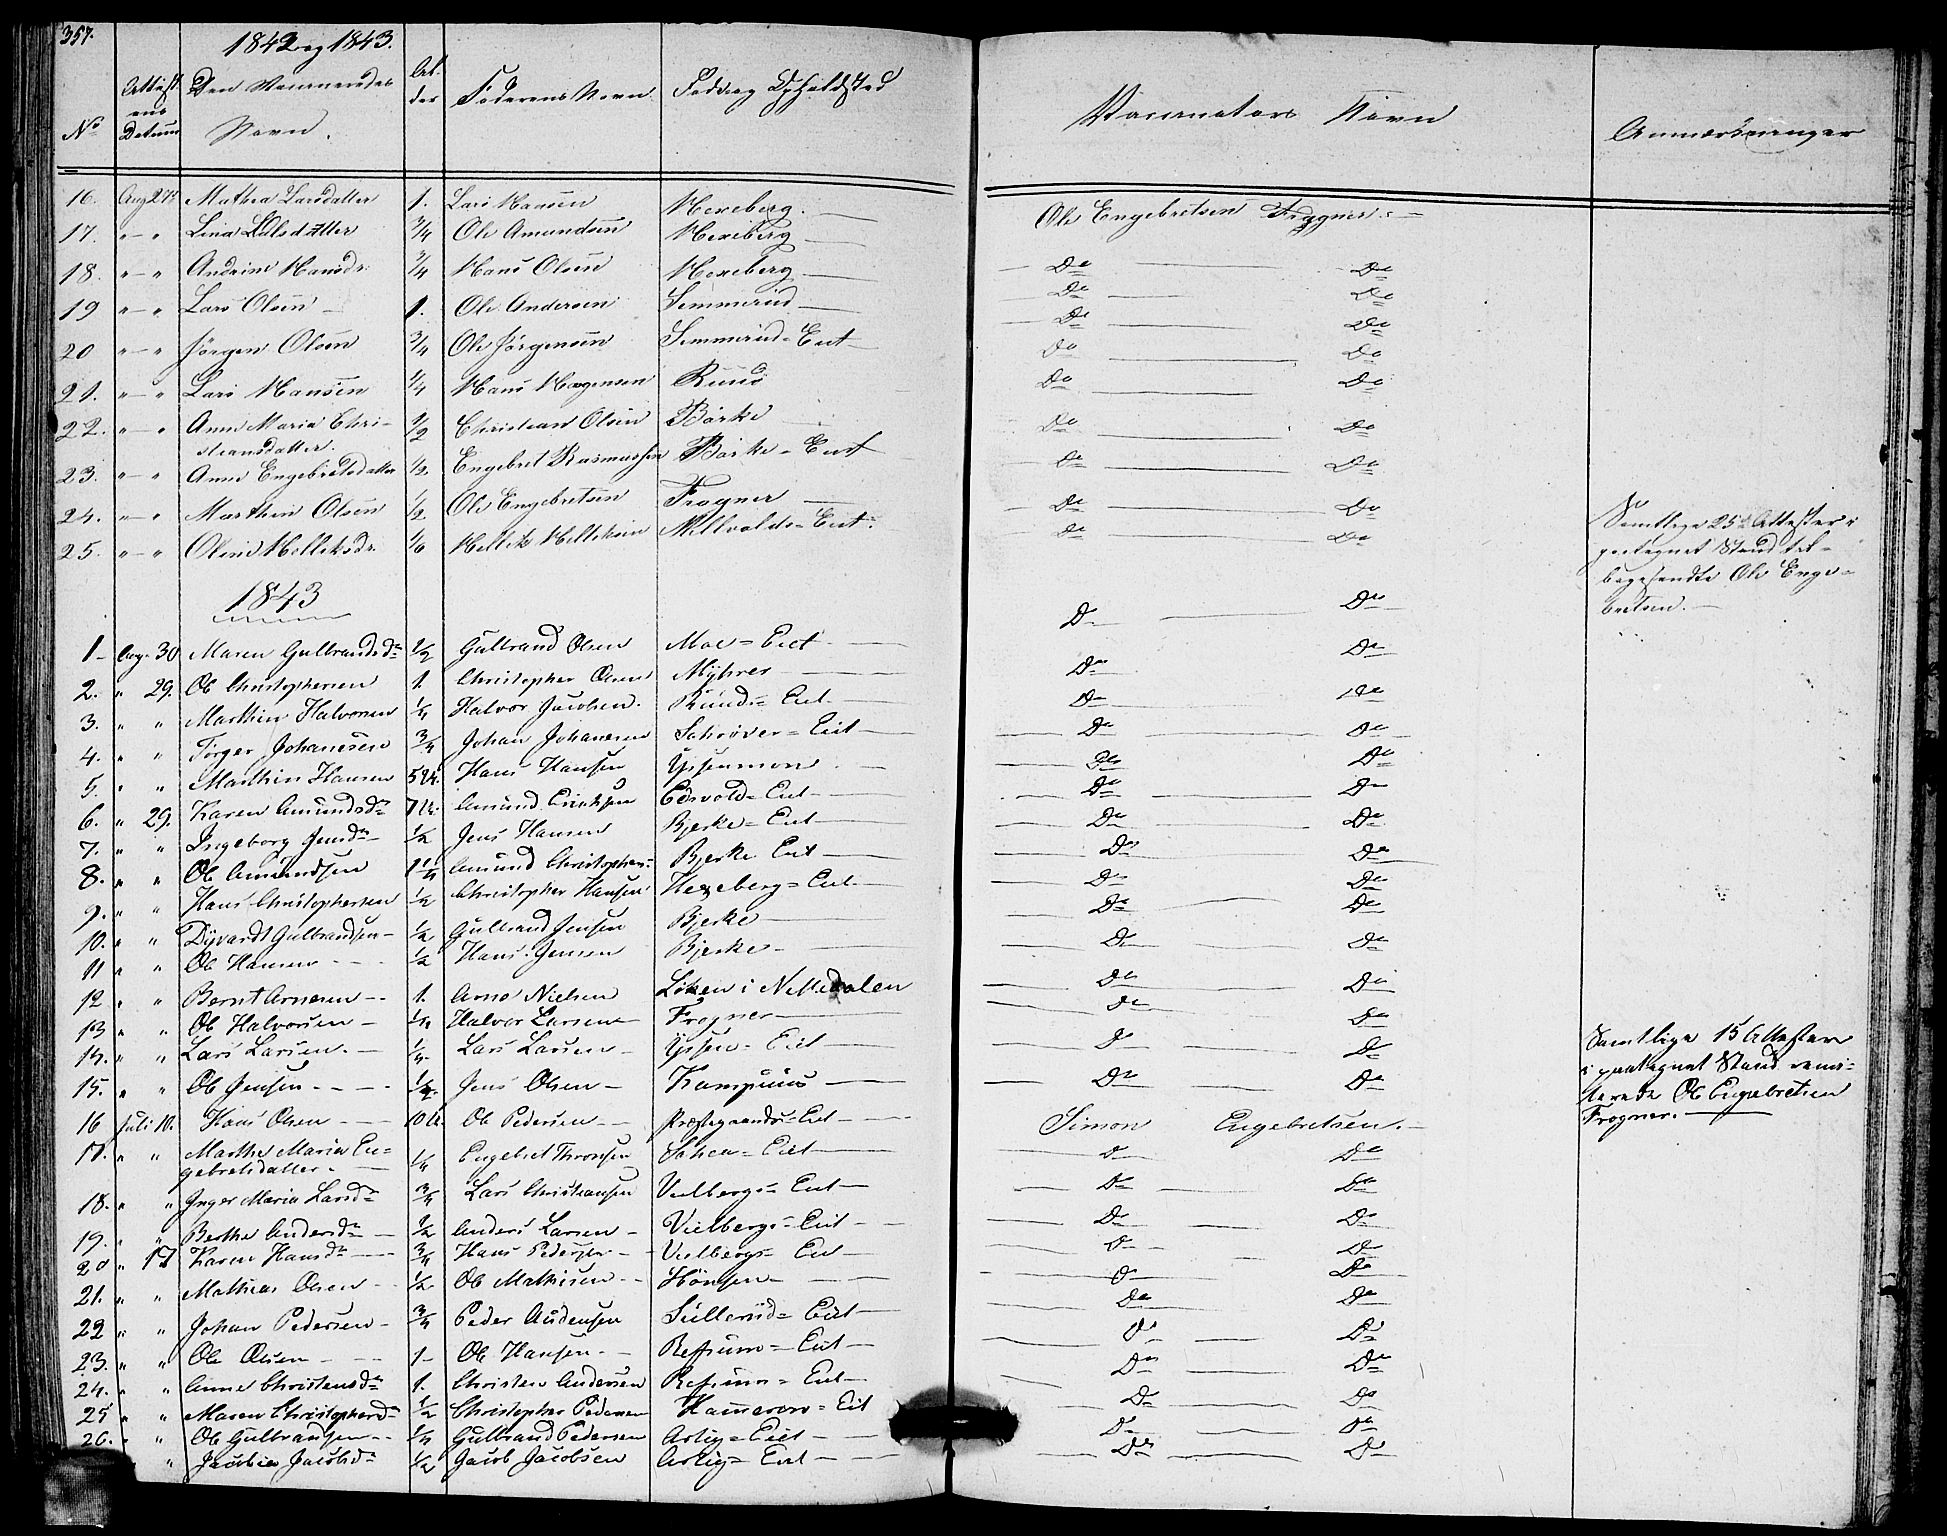 357.
1842 og 1843.
No
Attestens Datum
Den Vaccineredes Navn.
Alder
Faderens Navn
Fødeog Opholdsted
Vaccinators Navn
Anmærkninger
16. Aug 27de Mathea Larsdatter 1. Lars Hansen Hexeberg. Ole Engebretsen Frogner.
17. " " Lina Olsdatter 3/4 Ole Amundsen Hexeberg
18. " " Andrine Hansdr. 3/4 Hans Olsen Hexeberg Do Do
19 " " Lars Olsen 1. Ole Andersen Semmerud Do Do
20 " " Jørgen Olsen 3/4 Ole Jørgensen Semmerud-Eiet Do Do
21. " " Lars Hansen 1/4 Hans Hansen Ruud Do Do
22. " " Anne Maria Christiansdatter. 1/2 Christian Olsen Bærke Do Do
23. " " Anne Engebretsdatter 1/2 Engebret Rasmussen Bærke-Eiet Do Do
24. " " Marthin Olsen 1/2 Ole Engebretsen Frogner Do Do
25. " " Oline Helleksdr. 1/6 Hellek Helleksen Millvolds-Eiet. Do Do
Samtlige 25de Attester i
paategnet Stand til-
bagesendte Ole Enge-
bretsen.
1843
1 Aug. 30 Maren Gulbrandsdr 1/2 Gulbrand Olsen Moe-Eiet Do Do
2. " 29. Ole Christophersen 1. Christopher Olsen Myhrer Do Do
3. " " Marthin Halvorsen 1/4 Halvor Jacobsen. Ruuds-Eiet. Do Do
4. " " Torger Johanesen 3/4 Johan Johanesen Schrøver-Eiet Do Do
5. " " Marthin Hansen 5 Uk. Hans Hansen Ypsenmoen Do Do
6. " 29. Karen Amundsdr 7 U. Amund Erichsen Edsvold-Eiet Do Do
7. " " Ingeborg Jensdr 1/2 Jens Hansen Bjerke-Eiet Do Do
8. " " Ole Amundsen 1 1/4 Amund Christophers: Bjerke Eiet Do Do
9. " " Hans Christophersen 1/2 Christopher Hansen Hexeberg-Eiet. Do Do
10. " " Dyvardt Gulbrandsen 1/2 Gulbrand Jensen Bjerke Do Do
11 " " Ole Hansen 1/2 Hans Jensen Bjerke Do Do
12 " " Bernt Arnesen 1. Arne Nielsen Løken i Nittedalen Do Do
13 " " Ole Halvorsen 1/4 Halvor Larsen Frogner Do Do
14. " " Lars Larsen. 1/4. Lars Larsen Ypsen-Eiet Do Do
15. " " Ole Jensen 1/2. Jens Olsen Kamphuus Do Do
Samtlige 15 Attester
i paategnet Stand remi-
terede Ole Engebretsen
Frogner.
16 Juli 10. Hans Olsen 10 U. Ole Pedersen Præstegaards-Eiet Simon Engebretsen.
17. " " Marthe Maria Engebretsdatter. 1/4 Engebret Thronsen Schea-Eiet Do Do
18. " " Inger Maria Larsdr 3/4 Lars Christiansen Vielbergs-Eiet Do Do
19. " " Berthe Andersdr 1/2 Anders Larsen Vielbergs-Eiet Do Do
20 " 17 Karen Hansdr 3/4 Hans Pedersen Vielbergs-Eiet Do Do
21. " " Mathias Olsen 1/2 Ole Mathisen Hønsen Do Do
22 " " Johan Pedersen 3/4 Peder Audensen Sullerud-Eiet Do Do
23. " " Ole Olsen 1 Ole Hansen Refsum-Eiet Do Do
24. " " Anne Christensdr 1. Christen Andersen Refsum-Eiet Do Do
25 " " Maren Christophersdr 1/2 Christopher Pedersen Hameren-Eiet Do Do
26. " " Ole Gulbransen 1/4 Gulbrand Pedersen Arlig-Eiet Do Do
" Jacobia Jacobsdr 1/2 Jacob Jacobsen Arlig-Eiet Do Do